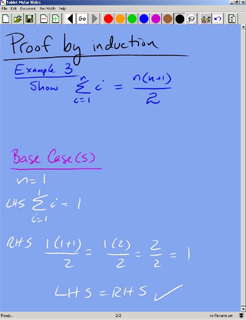 Tablet Mylar Slides
File Edit Document Pen Width Help
Go
Proof by induction
Example 3
Show n Σ i=1 i = n(n+1)/2
Base Case(s)
n=1
LHS 1 Σ i=1 i = 1
RHS 1(1+1)/2 = 1(2)/2 = 2/2 = 1
LHS = RHS ✓
Ready... 2/2 no filename yet